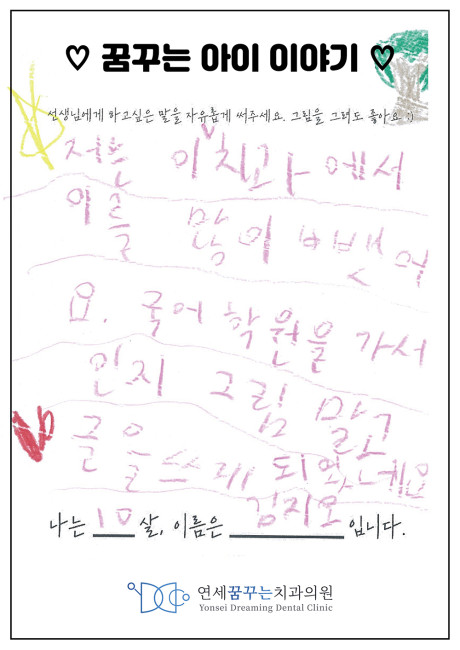 ♡ 꿈꾸는 아이 이야기 ♡
선생님에게 하고싶은 말을 자유롭게 써주세요. 그림을 그려도 좋아요 :)
저는 이 치과에서
이를 많이 뺐어
요. 국어 학원을 가서
인지 그림 말고
글을 쓰게 되었네요
나는 10 살, 이름은 김지오 입니다.
연세꿈꾸는치과의원
Yonsei Dreaming Dental Clinic